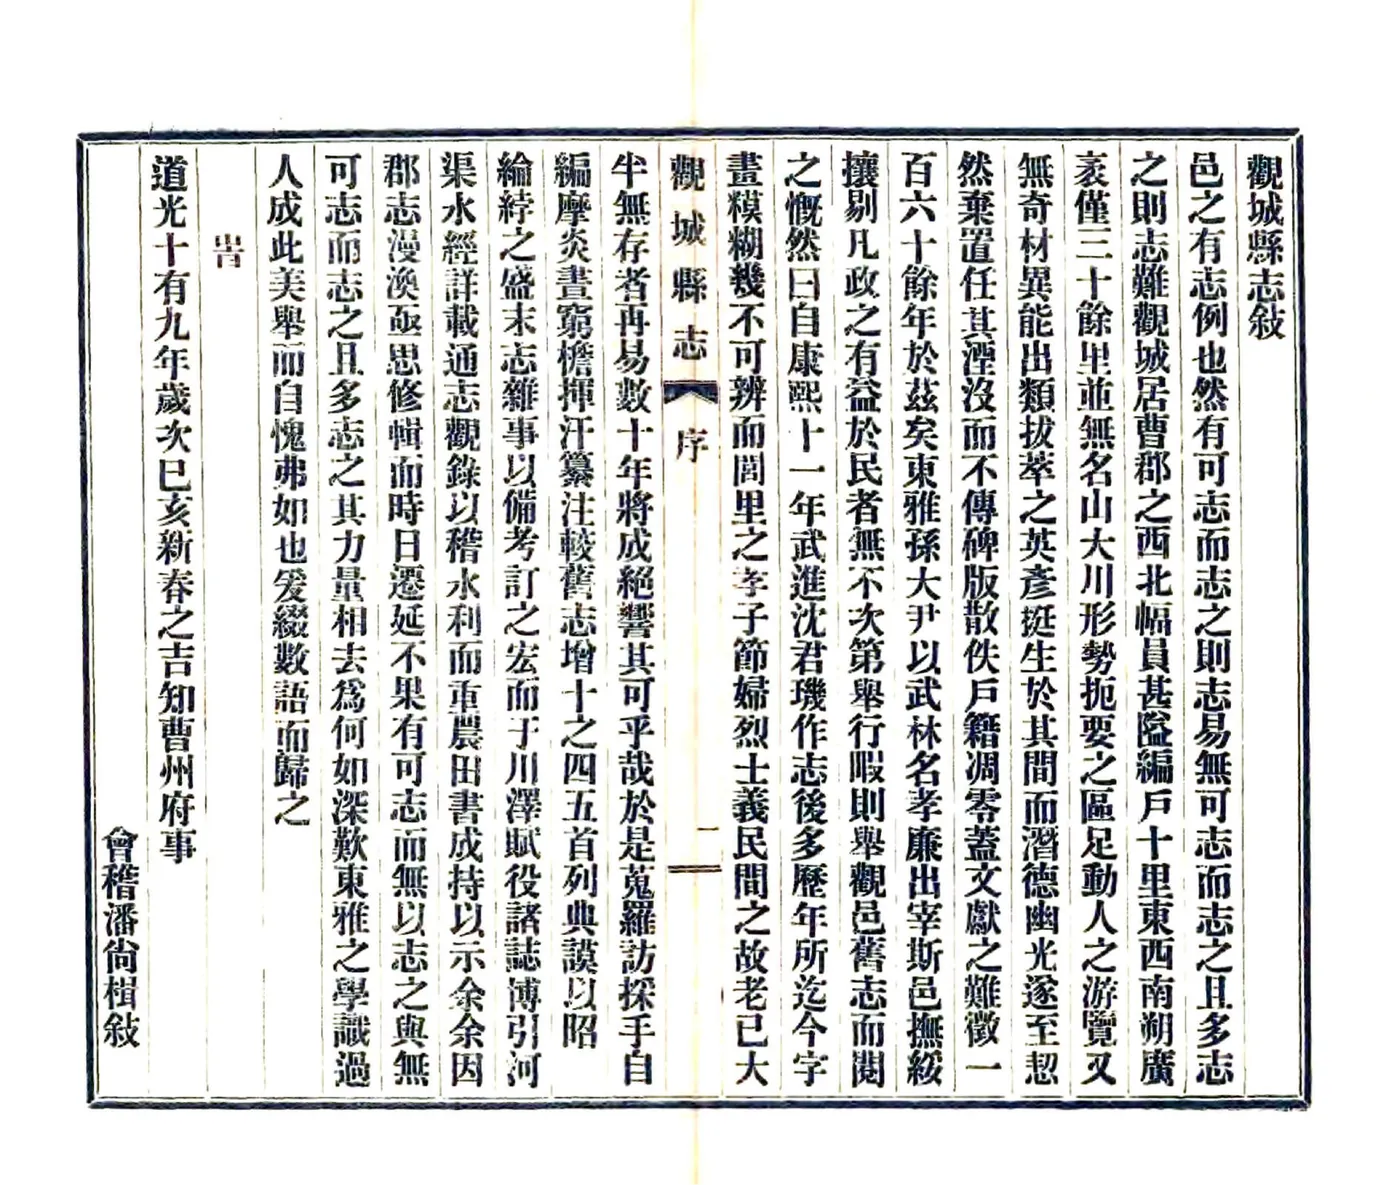 觀城縣志敍
邑之有志例也然有可志而志之則志易無可志而志之且多志
之則志難觀城居曹郡之西北幅員甚隘編戶十里東西南朔廣
袤僅三十餘里並無名山大川形勢扼要之區足動人之游覽又
無奇材異能出類拔萃之英彥挺生於其間而潛德幽光遂至恝
然棄置任其湮沒而不傳碑版散佚戶籍凋零蓋文獻之難徵一
百六十餘年於茲矣東雅孫大尹以武林名孝廉出宰斯邑撫綏
攘剔凡政之有益於民者無不次第舉行暇則舉觀邑舊志而閱
之慨然曰自康熙十一年武進沈君璣作志後多歷年所迄今字
畫糢糊幾不可辨而閭里之孝子節婦烈士義民間之故老已大
觀城縣志 序 一
半無存者再易數十年將成絕響其可乎哉於是蒐羅訪採手自
編摩炎晝窮檐揮汗纂注較舊志增十之四五首列典謨以昭
綸綍之盛末志雜事以備考訂之宏而于川澤賦役諸誌博引河
渠水經詳載通志觀錄以稽水利而重農田書成持以示余余因
郡志漫渙亟思修輯而時日遷延不果有可志而無以志之與無
可志而志之且多志之其力量相去爲何如深歎東雅之學識過
人成此美舉而自愧弗如也爰綴數語而歸之
旹
道光十有九年歲次已亥新春之吉知曹州府事
會稽潘尙楫敍